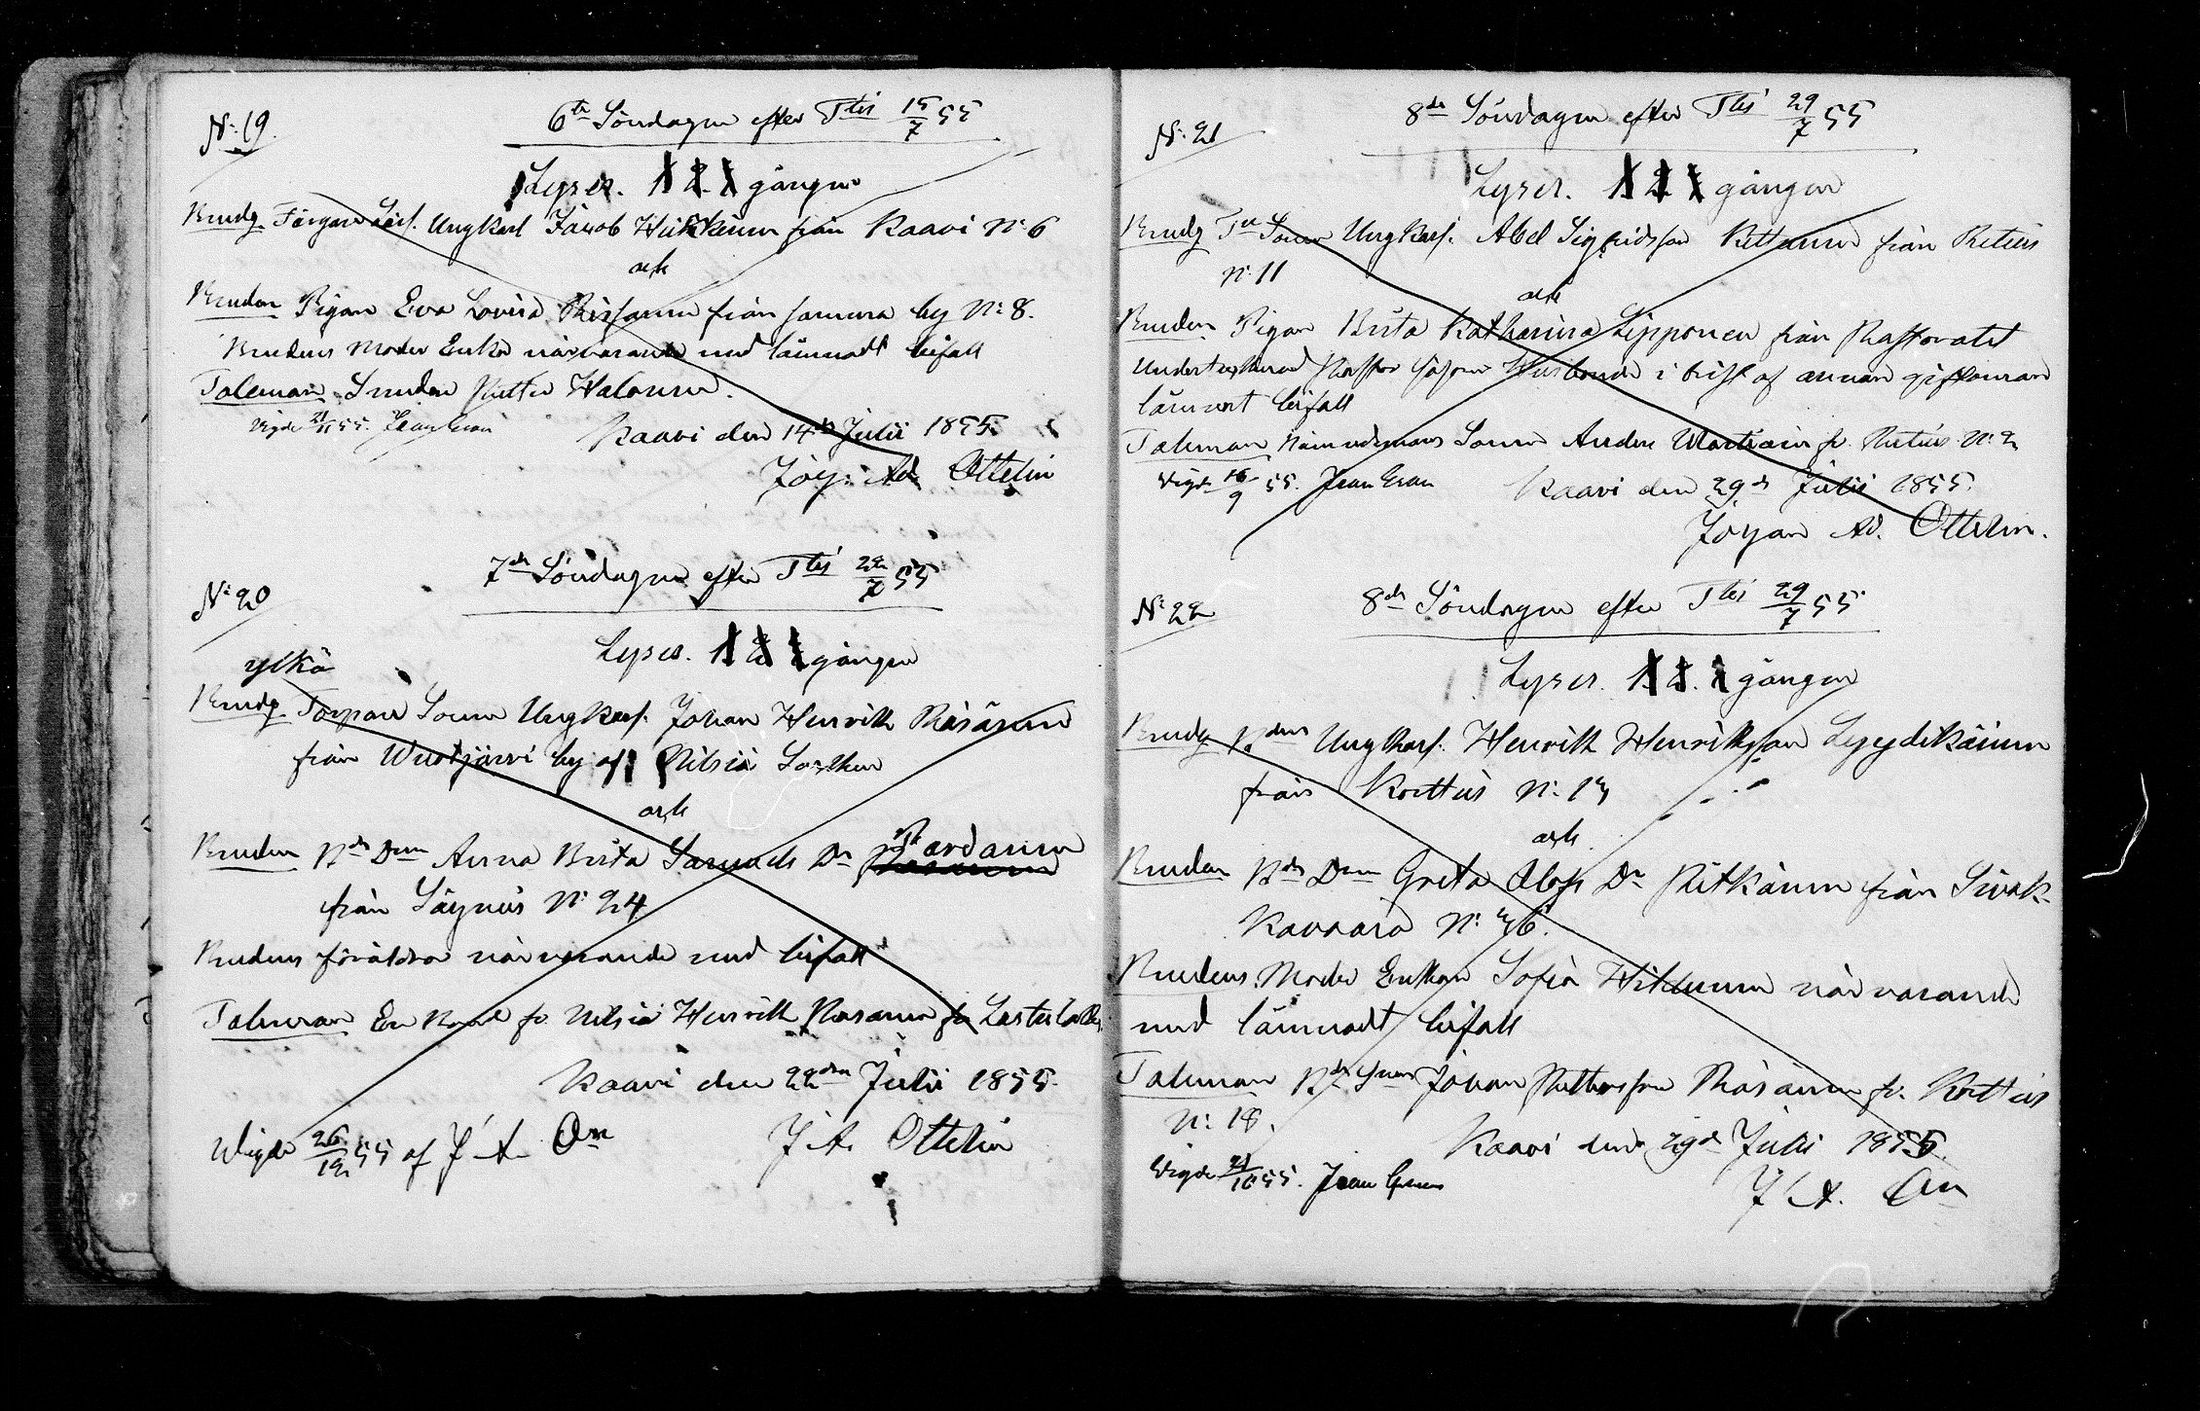 N: 19.
6te Söndagen efter Ttis 15/7 55
Lyses. 1 2. 3 gången
Brudg. Färgare Lärl. Ungkarl Jacob Hukkinen från Kaavi N: 6
och
Bruden Pigan Eva Lovisa Räsänen från samma by N: 8.
Brudens Moder Enka närvarande med lämnadt bifall
Taleman Petter Halonen.
Vigde 55.
Kaavi den 14de Julii 1855.
Joh: Ad. Ottelin
N: 20
7de Söndagen efter Ttis 22/7 55
Lyses. 1 2 3 gången
ylkä
Brudg. Torpare Sonen Ungkarl. Johan Henrik Räsänen
från Wuotjärvi by af Nilsiä Socken
och
Bruden Bde Dren Anna Brita Samuels Dr Pardanen
från Säyneis N: 24
Brudens föräldrar närvarande med bifall
Taleman fr. Nilsiä Henrik Räsänen fr.
Kaavi den 22den Julii 1855.
Wigde 26/12 55 af J A On
J A. Ottelin
N: 21
8de Söndagen efter Ttis 29/7 55
Lyses. 1 2 3 gången
Brudg Sonen Ungkarl. Abel Sigfridsson från
N: 11
och
Bruden Pigan Brita Katharina Lipponen från Pastoratet
Undertecknad Pastor såsom Husbonde i brist af annan giftoman
lämnat bifall
Taleman Nämndemans Sonen Anders Wartiain fr. N: 2
Vigde 16/9 55.
Kaavi den 29de Julii 1855.
Johan Ad. Ottelin.
N: 22
8de Söndagen efter Ttis 29/7 55
Lyses. 1. 2. 3 gången
Brudg Bden Ungkarl. Henrik Henriksson Lyydikäinen
från Kortteis N: 13
och
Bruden Bde Dren Greta Olofs Dr Pitkänen från Sivak-
kavaara N: 36.
Brudens Moder Enkan Sofia närvarande
med lämnadt bifall
Taleman Bde Snen Johan Pettersson Räsänen fr. Kortteis
N: 18.
Kaavi den 29de Julii 1855.
Vigde 55.
J A. On